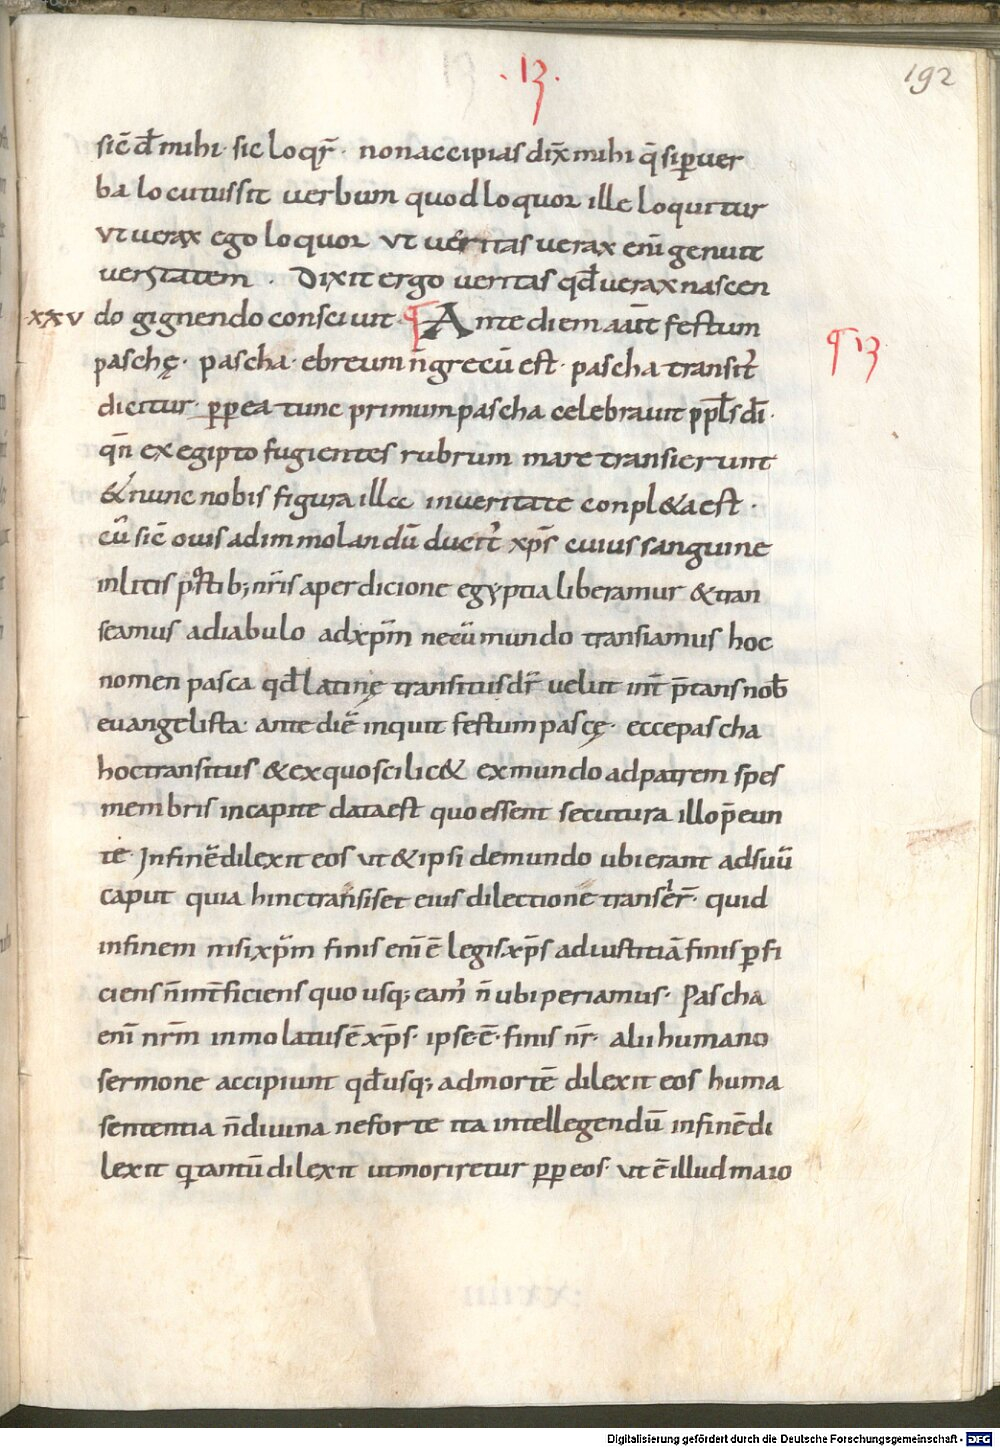 192
· 13 ·
sic̄ d̄ mihi · sic loqr̄ · non accipias dix̄ mihi q̄ si ꝑ ver
ba locutus sit verbum quod loquor ille loquitur
vt verax ego loquor vt veritas verax eni̅ genuit
veritatem · Dixit ergo veritas qd̄ verax nascen
xxv do gignendo consciuit · ¶ Ante diem aut̄ festum
¶ 13
paschę · pascha · ebreum n̄ grecū est · pascha transit᾽
dicitur · ꝓꝑea tunc primum pascha celebrauit ppl̄s dī ·
qn̄ ex egipto fugientes rubrum mare transierunt
& nunc nobis figura illa in veritate conpl&a est ·
cū sic̄ ouis ad immolandū ducit᾽ xp̄s cuius sanguine
inlitis postib; nr̄is a perdicione egyptia liberamur & tran
seamus a diabulo ad xp̄m ne cū mundo transiamus hoc
nomen pasca qd̄ latinę transitus dr̄ velut int̄ p̄tans nob̄
euangelista · ante diē inquit festum pascę · ecce pascha
hoc transitus & ex quo scilic& ex mundo ad patrem spes
membris in capite data est quo essent secutura illo p̄eun
te · In finē dilexit eos vt & ipsi de mundo ubi erant ad suū
caput quia hinc transiset eius dilectione transer̄ · quid
in finem nisi xp̄m finis eni̅ ē legis xp̄s ad iustitiā finis ꝑfi
ciens n̄ int̄ficiens quo usq; eam᾽ n̄ ubi periamus · Pascha
eni̅ nr̄m inmolatus ē xp̄s · ipse · ē · finis nr̄ · alii humano
sermone accipiunt qd̄ usq; ad mortē dilexit eos huma
sententia n̄ diuina ne forte ita intellegendū in finē di
lexit q tantū dilexit ut moriretur ꝓꝑ eos · vt ē illud maio
Digitalisierung gefördert durch die Deutsche Forschungsgemeinschaft - DFG